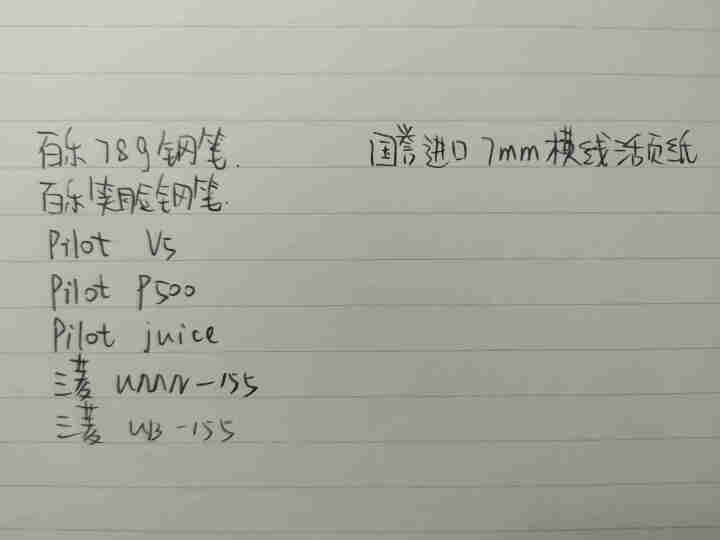 百乐78g钢笔.
国誉进口7mm横线活页纸
百乐笑脸钢笔.
Pilot V5
Pilot P500
Pilot juice
三菱 UMN-155
三菱 UB-155